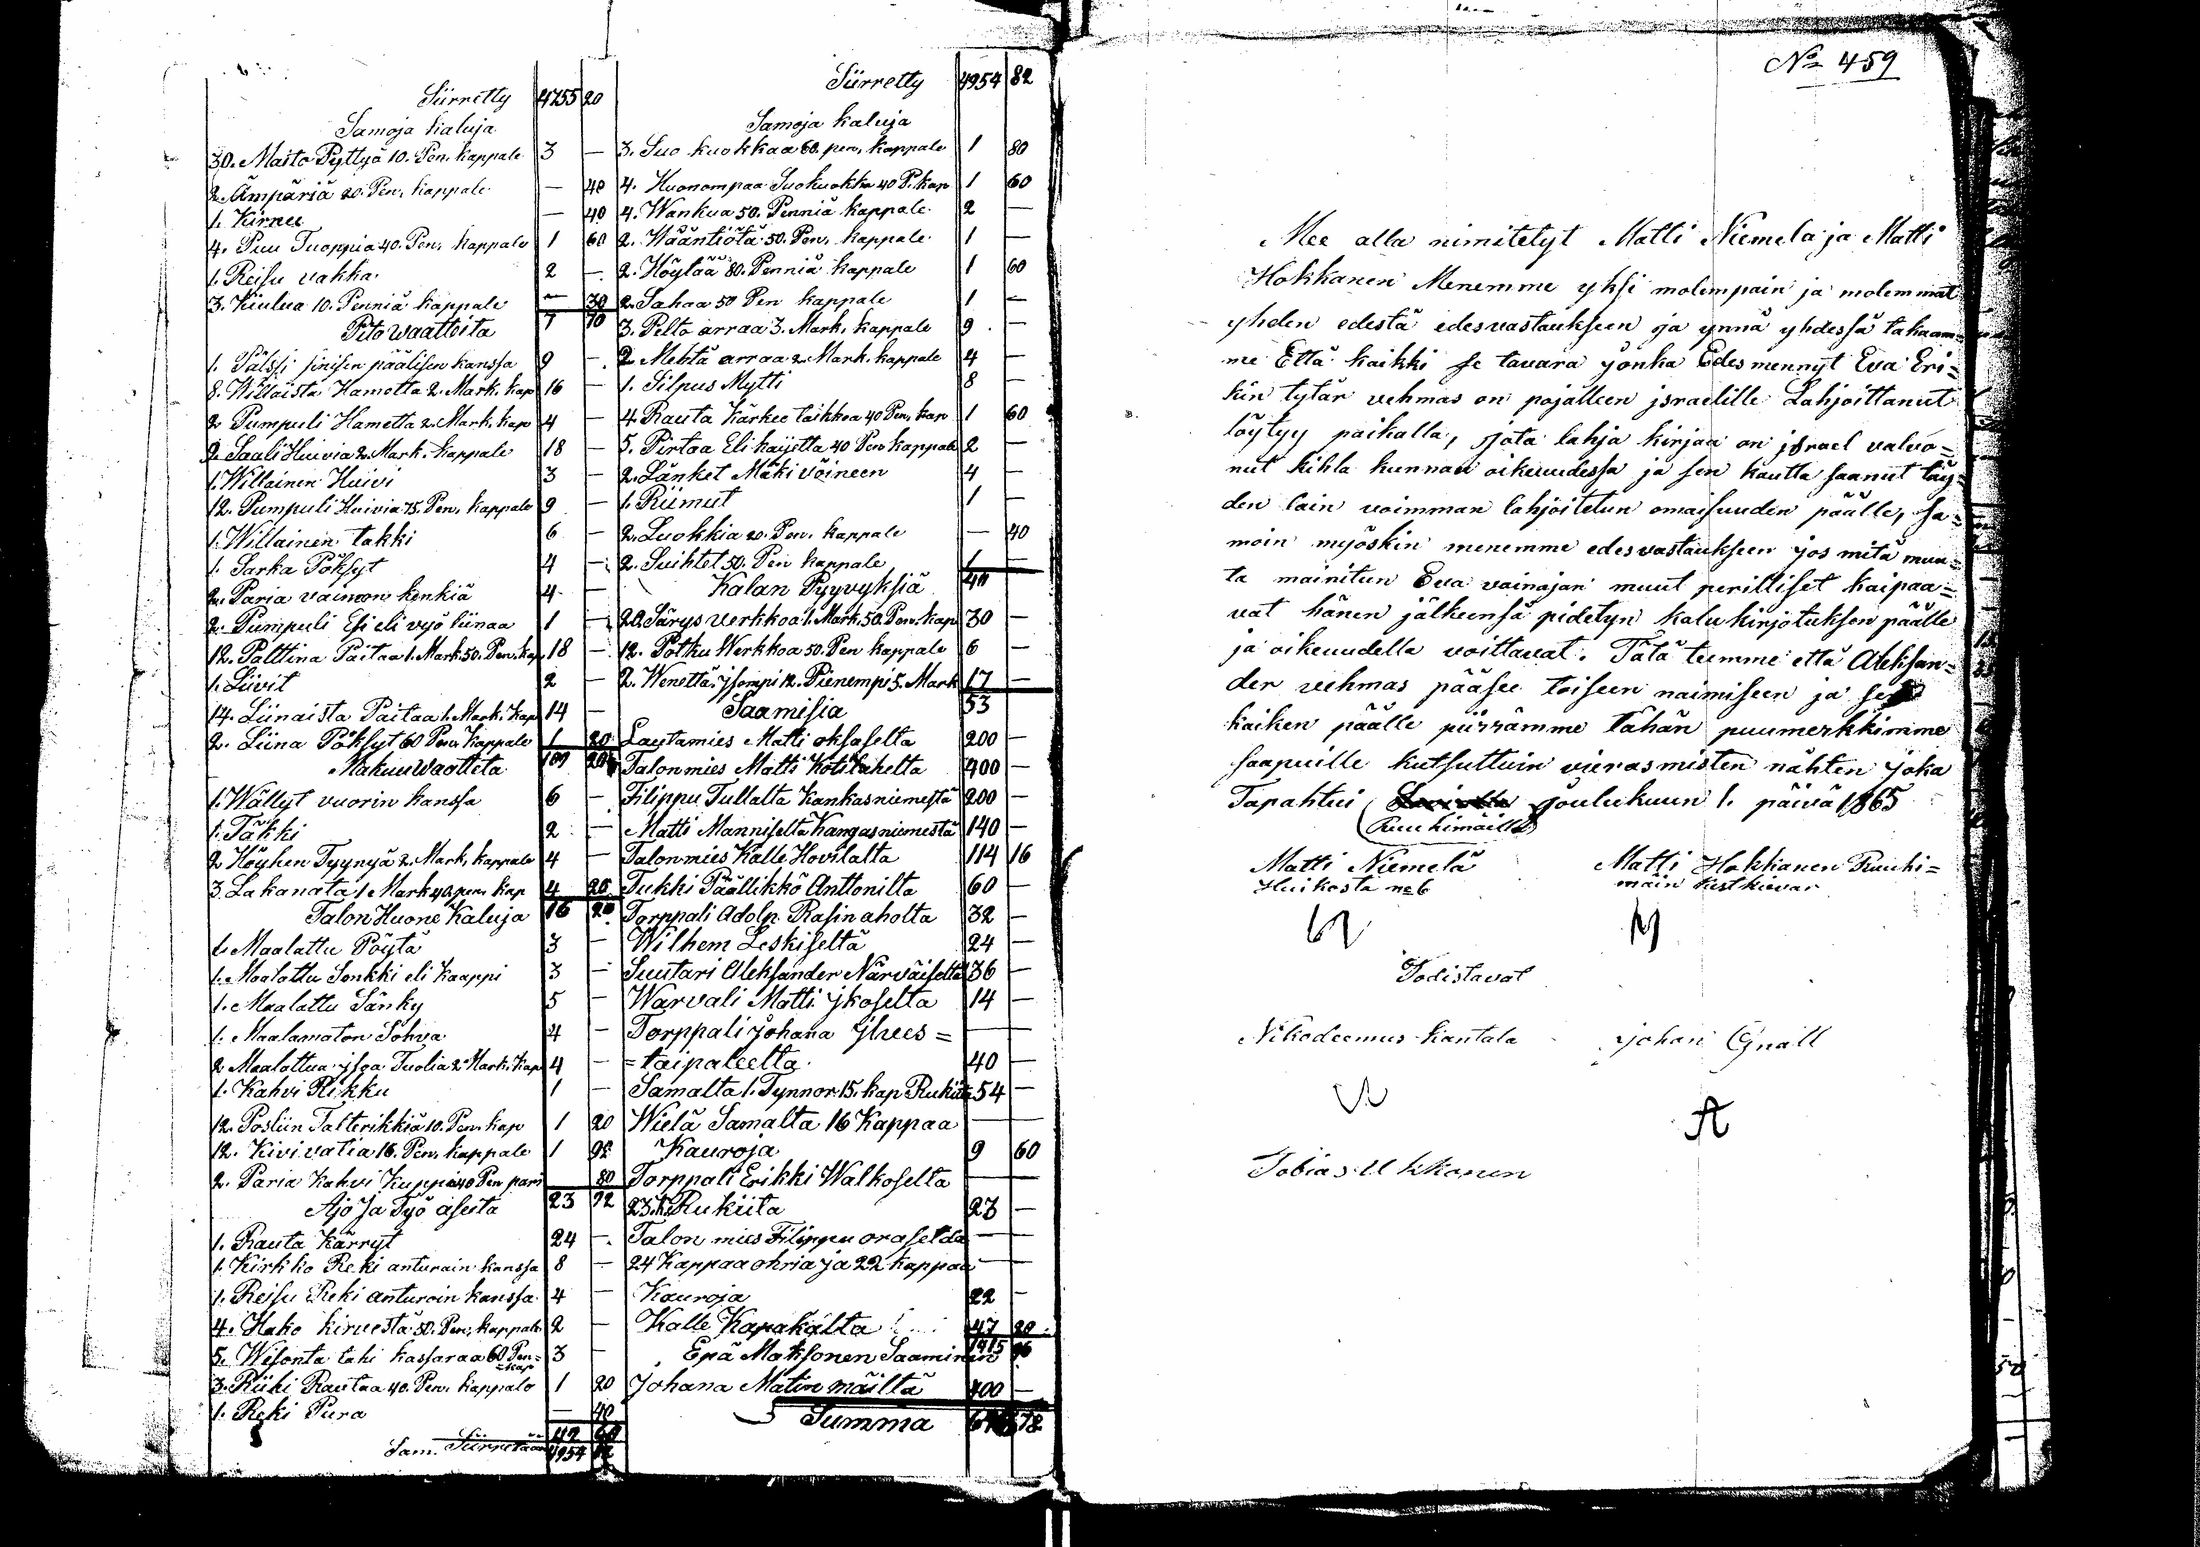 Siirretty 4755 20
Samoja kaluja
30. Maito Pyttyä 10. Pen. kappale 3 —
2. Ämpäriä 20. Pen. kappale — 40
1. Kirnu — 40
4. Puu Tuoppia 40. Pen. kappale 1 60
1. Reisu vakka 2 —
3. Kiulua 10. Penniä kappale — 30
Pito waatteita 7 70
1. Pälssi sinisen päälisen kanssa 9 —
8. Willaista Hametta 2. Mark. kap 16 —
2 Pumpuli Hametta 2. Mark. kap 4 —
9. Saali Huivia 2. Mark. kappale 18 —
1. Willainen Huivi 3 —
12. Pumpuli Huivia 75. Pen. kappale 9 —
1. Willainen takki 6 —
1. Sarka Pöksyt 4 —
2. Paria vaimon kenkiä 4 —
2. Pumpuli Esi eli vyö liinaa 1 —
12. Palttina Paitaa 1. Mark. 50. Pen. kap 18 —
1. Liivit 2 —
14. Liinaista Paitaa 1. Mark. kap 14 —
2. Liina Pöksyt 60 Pen. kappale 1 20
Makuu Waatteta 109 20
1. Wällyt vuorin kanssa 6 —
1. Täkki 2 —
2 Höyhen Tyynyä 2. Mark. kappale 4 —
3. Lakanata 1 Mark 40. pen. kap 4 20
Talon Huone Kaluja 16 20
1. Maalattu Pöytä 3 —
1. Maalattu Senkki eli Kaappi 3 —
1. Maalattu Sänky 5 —
1. Maalamaton Sohva 4 —
2 Maalattua isoa Tuolia 2 Mark. kap 4 —
1. Kahvi Rikku 1 —
12. Posliin Talterikkiä 10. Pen. kap 1 20
12. Kivi vatia 16. Pen. kappale 1 92
2. Paria Kahvi Kuppia 40 Pen pari 80
Ajo Ja Työ aseita 23 92
1. Rauta Kärryt 24 —
1. Kirkko Reki anturain kanssa 8 —
1. Reisu Reki anturoin kanssa 4 —
4. Hako kirvestä 50. Pen. kappale 2 —
5. Wesonta tahi kassaraa 60 Pen= =kap 3 —
3. Riihi Rautaa 40. Pen. kappale 1 20
1. Reki Pura — 40
42 60
Sam. Siirretään 4954 82
Siirretty 4954 82
Samoja kaluja
3. Suo kuokkaa 60. pen. kappale 1 80
4. Huonompaa Suokuokka 40 P. kap 1 60
4. Wankua 50. Penniä kappale 2 —
2. Wääntiötä 50. Pen. kappale 1 —
2. Höylää 80. Penniä kappale 1 60
2. Sahaa 50 Pen kappale 1 —
3. Pelto arraa 3. Mark. kappale 9 —
2 Mehtä arraa 2. Mark. kappale 4 —
1. Silpus Mytti 8 —
4. Rauta Kärkee taikkoa 40 Pen. kap 1 60
5. Pirtaa Eli kaijetta 40 Pen kappale 2 —
2. Länket Mäki vöineen 4 —
1. Riimut 1 —
2. Luokkia 20. Pen. kappale — 40
2. Suihtet 50. Pen kappale 1 —
Kalan Pyyvyksiä 40
20. Särys verkkoa 1. Mark. 50. Pen. kap 30 —
12. Potku Werkkoa 50. Pen kappale 6 —
2. Wenettä. isompi 12. Pienempi 5. Mark 17 —
Saamisia 53
Lautamies Matti oksaselta 200 —
Talonmies Matti Kotilahelta 400 —
Filippu Tullalta Kankasniemestä 200 —
Matti Manniselta Kangasniemestä 140 —
Talonmies Kalle Hovilalta 114 16
Tukki Päällikkö Anttonilta 60 —
Torppali Adolp Rasin aholta 32 —
Wilhem Leskiseltä 24 —
Suutari Aleksander Närväiseltä 36 —
Warvali Matti ikoselta 14 —
Torppali Johana ihees =
= taipaleelta 40 —
Samalta 1. Tynnor. 15. kap Rukiita 54 —
Wielä Samalta 16 Kappaa
Kauroja 9 60
Torppali Erikki Walkoselta
23. k. Rukiita 23 —
Talon mies Filippu oraselda
24 Kappaa ohria ja 22 kappaa
Kauroja 22 —
Kalle Kapakalta 47 20
Epä Maksonen Saaminen 1415 96
Johana Matin mäiltä 400 —
Summa
No 459
Mee alla nimitetyt Matti Niemelä ja Matti
Hokkanen Menemme yksi molempain ja molemmat
yhden edestä edesvastaukseen ja ynnä yhdessä takaam=
me Että kaikki se tavara jonka Edesmennyt Eva Eri=
kin tytär vehmas on pojalleen israelille Lahjoittanut
löytyy paikalla, jota lahja kirjaa on israel valvo=
nut kihla kunnan oikeudessa ja sen kautta saanut täy=
den lain voimman lahjoitetun omaisuuden päälle, sa=
moin myöskin menemme edesvastaukseen jos mitä muu=
ta mainitun Eva vainajan muut perilliset kaipaa=
vat hänen jälkeensä pidetyn kalukirjotuksen päälle
ja oikeudella voittavat. Tätä teemme että Aleksan=
der vehmas pääsee toiseen naimiseen ja sen
kaiken päälle piirrämme tähän puumerkkimme
saapuille kutsuttuin vierasmisten nähten joka
Tapahtui Joulukuun 1. päivä 1865
(Ruuhimäillä)
Matti Niemelä Matti Hokkanen Ruuhi=
Huikosta no 6 mäin kestkievar
Todistavat
Nikodeemus kantala Johan Gnall
Tobias Ukkonen